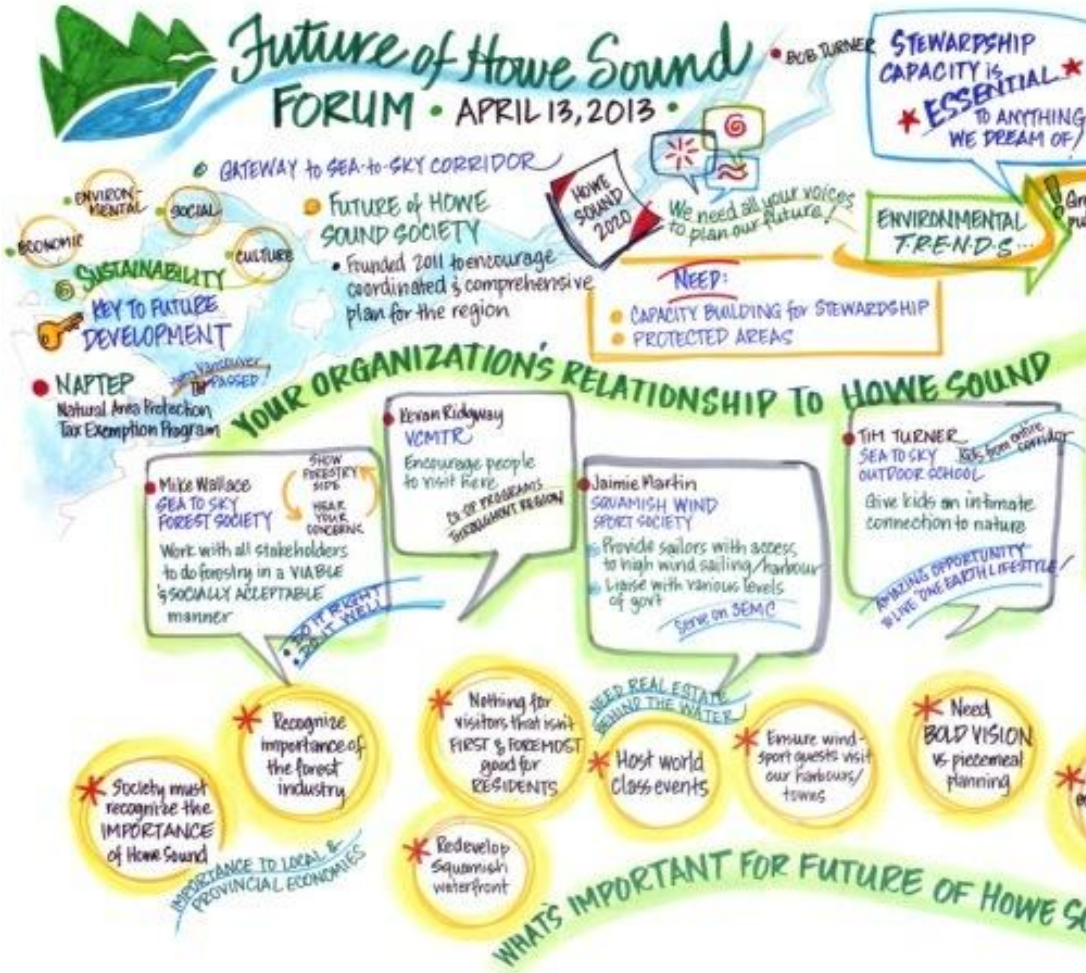 Future of Howe Sound
FORUM • APRIL 13, 2013 •
BOB TURNER
STEWARDSHIP
CAPACITY is
ESSENTIAL
TO ANYTHING
WE DREAM OF!
GATEWAY to SEA-to-SKY CORRIDOR
ENVIRON-
MENTAL
SOCIAL
ECONOMIC
CULTURE
SUSTAINABILITY
KEY TO FUTURE
DEVELOPMENT
FUTURE of HOWE
SOUND SOCIETY
• Founded 2011 to encourage
coordinated & comprehensive
plan for the region
HOWE
SOUND
2020
We need all your voices
to plan our future!
ENVIRONMENTAL
TRENDS...
NEED:
CAPACITY BUILDING for STEWARDSHIP
PROTECTED AREAS
NAPTEP
Vancouver
PASSED!
Natural Area Protection
Tax Exemption Program
YOUR ORGANIZATION'S RELATIONSHIP TO HOWE SOUND
Mike Wallace
SEA TO SKY
FOREST SOCIETY
SHOW
FORESTRY
SIDE
HEAR
YOUR
CONCERNS
Work with all stakeholders
to do forestry in a VIABLE
& SOCIALLY ACCEPTABLE
manner
• DO IT RIGHT
• DO IT WELL
Kevan Ridgway
VCMTR
Encourage people
to visit here
CO-OP PROGRAMS
THROUGHOUT REGION
Jaimie Martin
SQUAMISH WIND
SPORT SOCIETY
Provide sailors with access
to high wind sailing/harbour
Liaise with various levels
of govt
Serve on SEMC
TIM TURNER
SEA TO SKY
OUTDOOR SCHOOL
Kids from entire
corridor
Give kids an intimate
connection to nature
AMAZING OPPORTUNITY
to LIVE "ONE EARTH LIFESTYLE"!
Society must
recognize the
IMPORTANCE
of Howe Sound
Recognize
importance of
the forest
industry
IMPORTANCE TO LOCAL &
PROVINCIAL ECONOMIES
Nothing for
visitors that isn't
FIRST & FOREMOST
good for
RESIDENTS
Redevelop
Squamish
waterfront
NEED REAL ESTATE
BEHIND THE WATER
Host world
class events
Ensure wind-
sport guests visit
our harbours/
towns
Need
BOLD VISION
vs piecemeal
planning
WHAT'S IMPORTANT FOR FUTURE OF HOWE